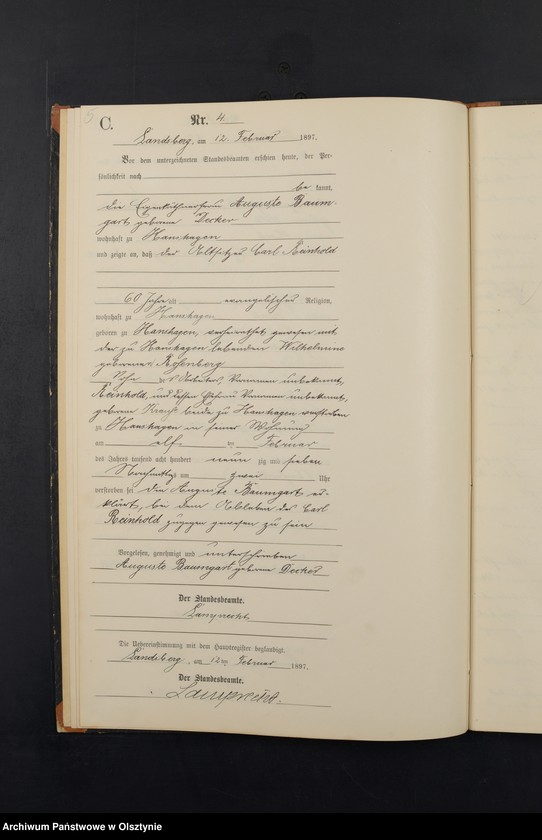 5
C.
Nr. 4
Landsberg, am 12. Februar 1897.
Vor dem unterzeichneten Standesbeamten erschien heute, der Per-
sönlichkeit nach
be kannt,
die Eigenkäthnerfrau Auguste Baum-
gart geborene Decker
wohnhaft zu Hanshagen
und zeigte an, daß der Altsitzer Carl Reinhold
60 Jahre alt evangelischer Religion,
wohnhaft zu Hanshagen
geboren zu Hanshagen, verheirathet gewesen mit
der zu Hanshagen lebenden Wilhelmine
geborenen Rosenberg
Sohn des Arbeiters, Vornamen unbekannt,
Reinhold, und dessen Ehefrau Vornamen unbekannt,
geborene beide zu Hanshagen verstorben
zu Hanshagen in seiner Wohnung
am elf ten Februar
des Jahres tausend acht hundert neun zig und sieben
Nachmittags um zwei Uhr
verstorben sei die Auguste Baumgart er-
klärt, bei dem Ableben des Carl
Reinhold zugegen gewesen zu sein
Vorgelesen, genehmigt und unterschrieben
Auguste Baumgart geborene Decker
Der Standesbeamte.
Lamprecht.
Die Uebereinstimmung mit dem Hauptregister beglaubigt.
Landsberg, am 12ten Februar 1897.
Der Standesbeamte.
Lamprecht.
Archiwum Państwowe w Olsztynie